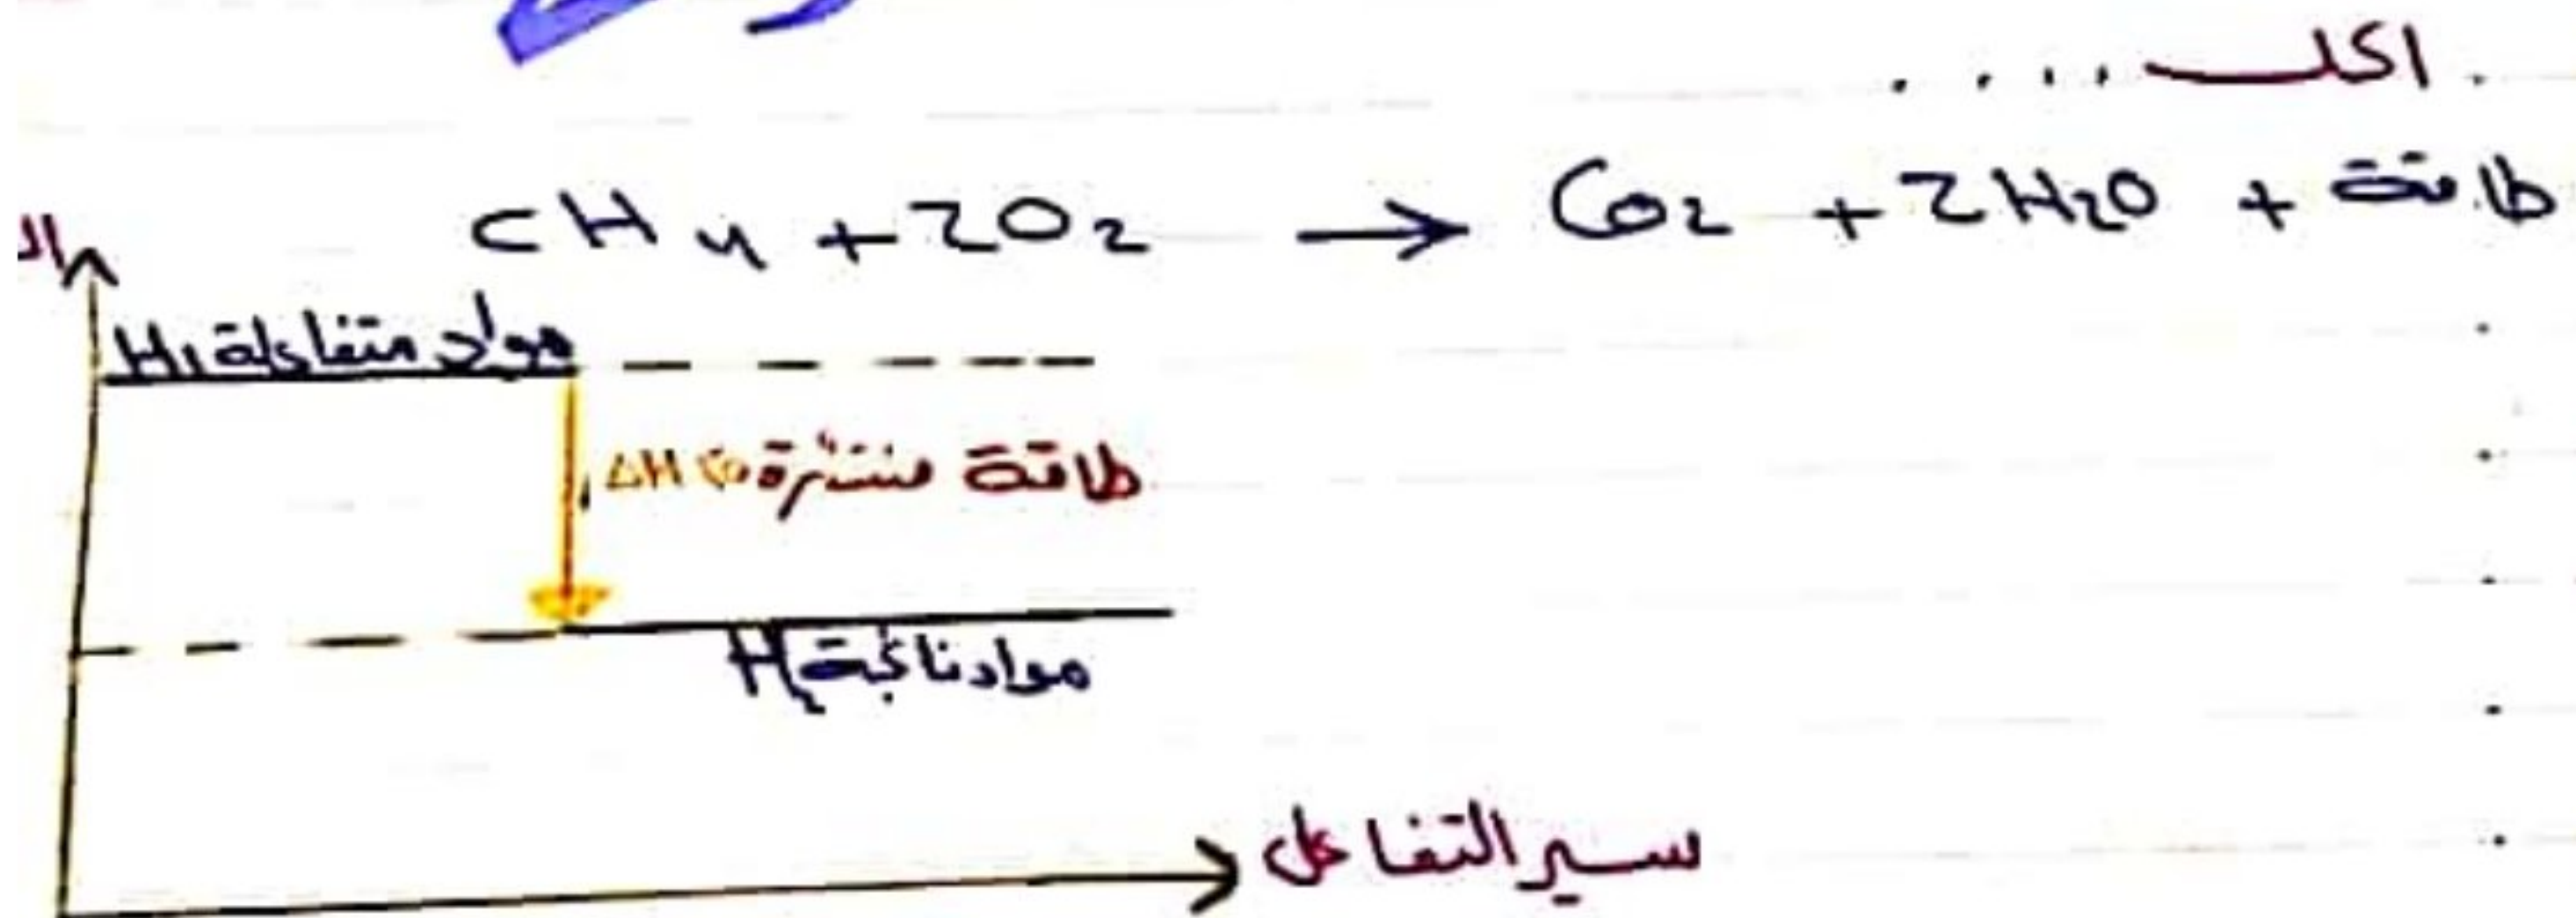 اكل . . . .
CH4 + 2O2 → CO2 + 2H2O + طاقة
مواد متفاعلة H1
طاقة منتشرة ΔH
مواد ناتجة H2
سير التفاعل